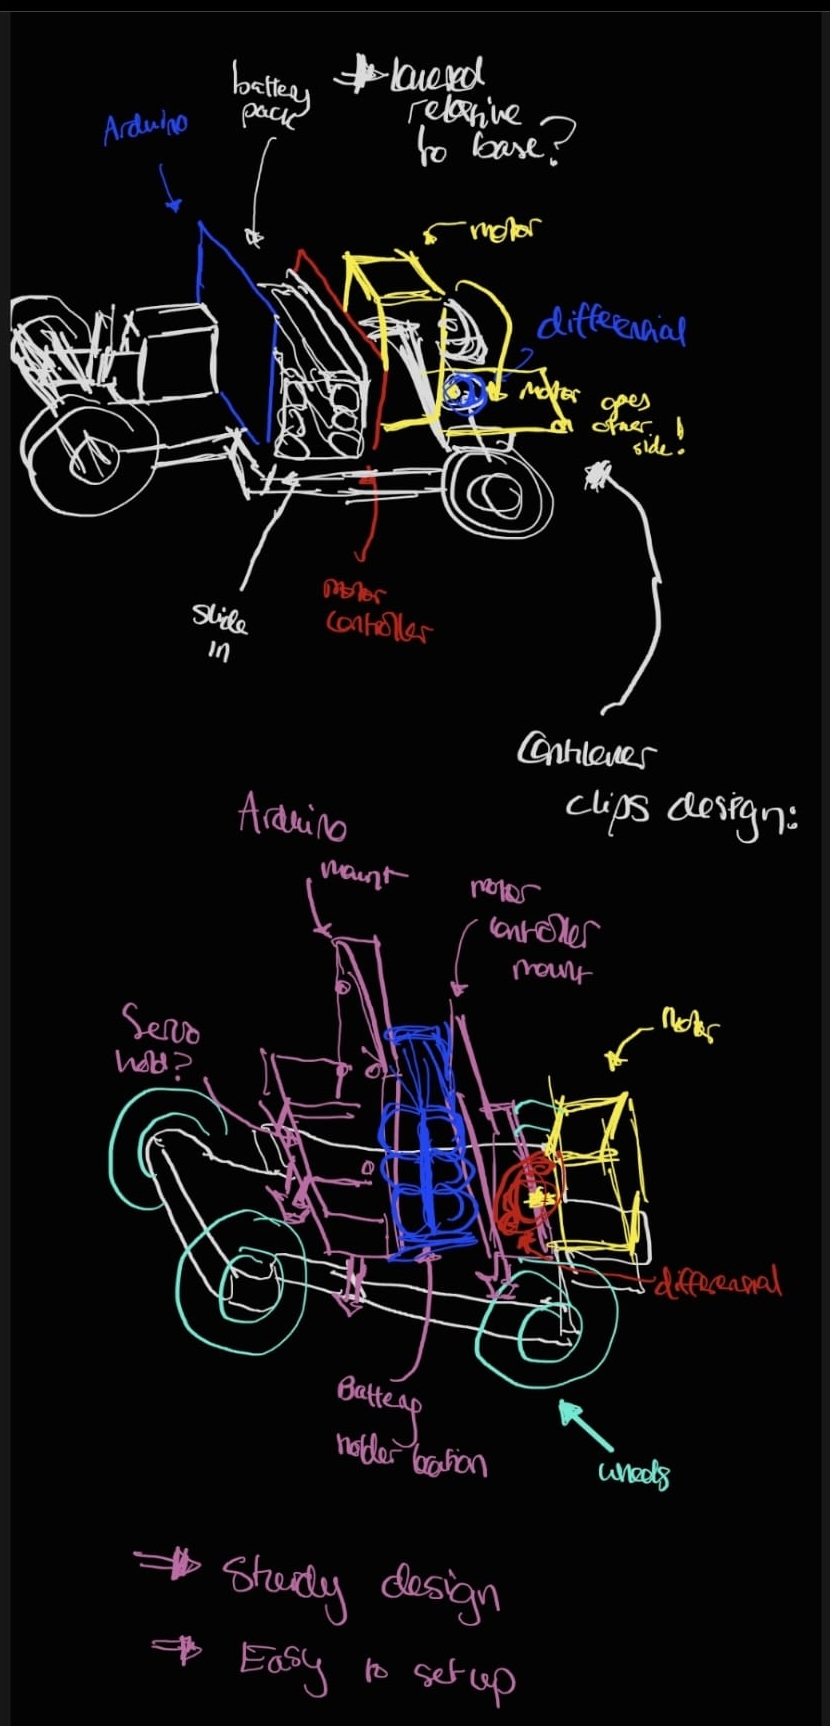 battery
pack
→ lowered
relative
to base?
Arduino
motor
differential
motor goes
other
side!
slide
in
motor
controller
Cantilever
clips design:
Arduino
mount
motor
controller
mount
Servo
hold?
Motor
differential
Battery
holder location
wheels
⇒ Sturdy design
⇒ Easy to set up